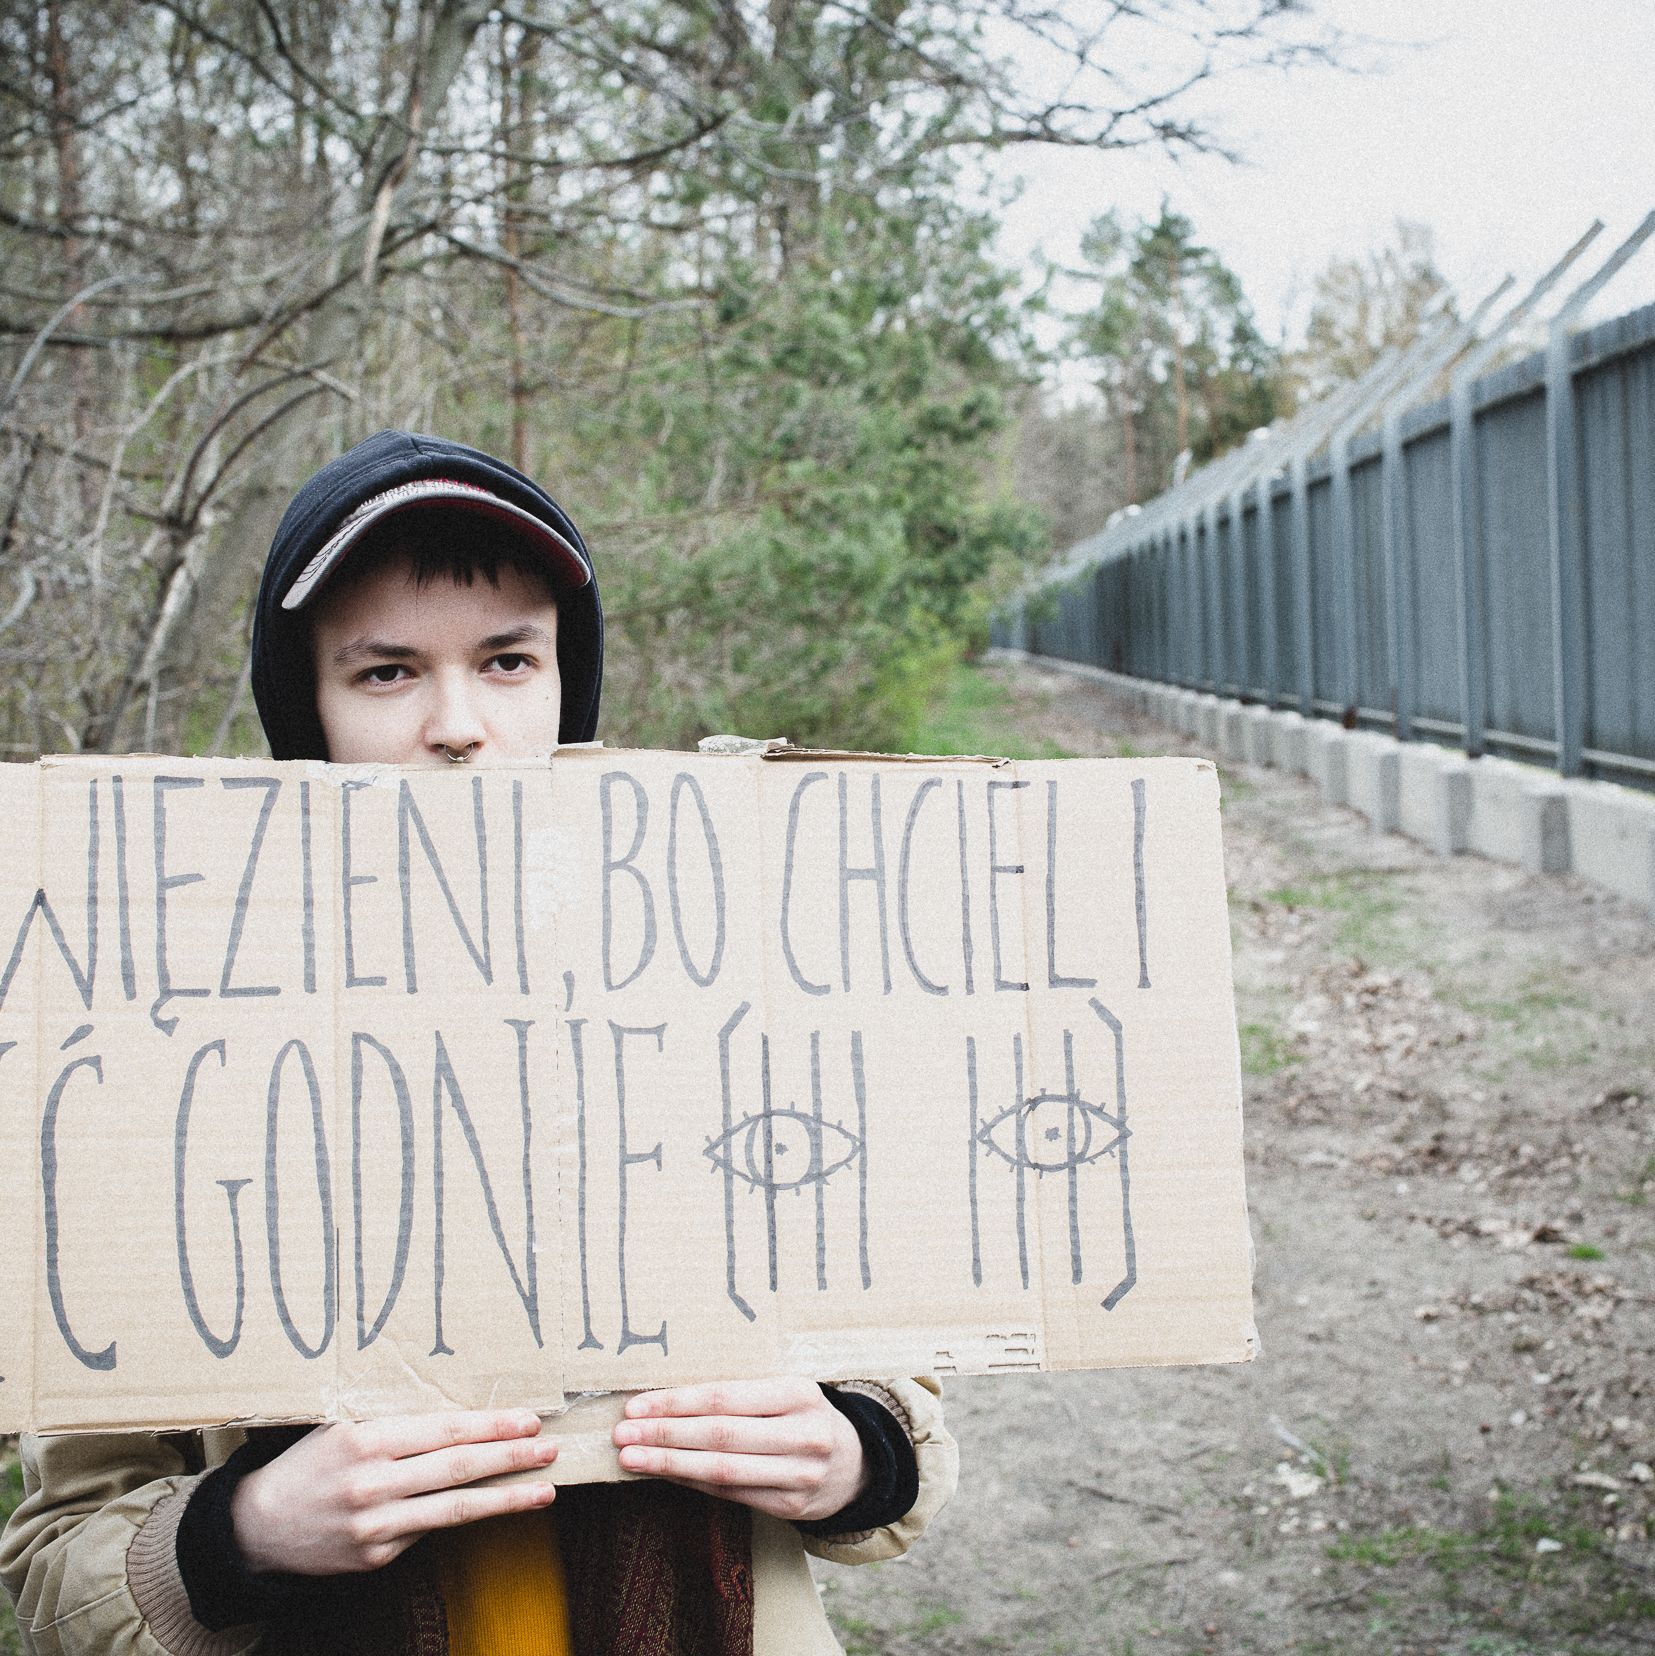 WIĘZIENI, BO CHCIELI
Ć GODNIE